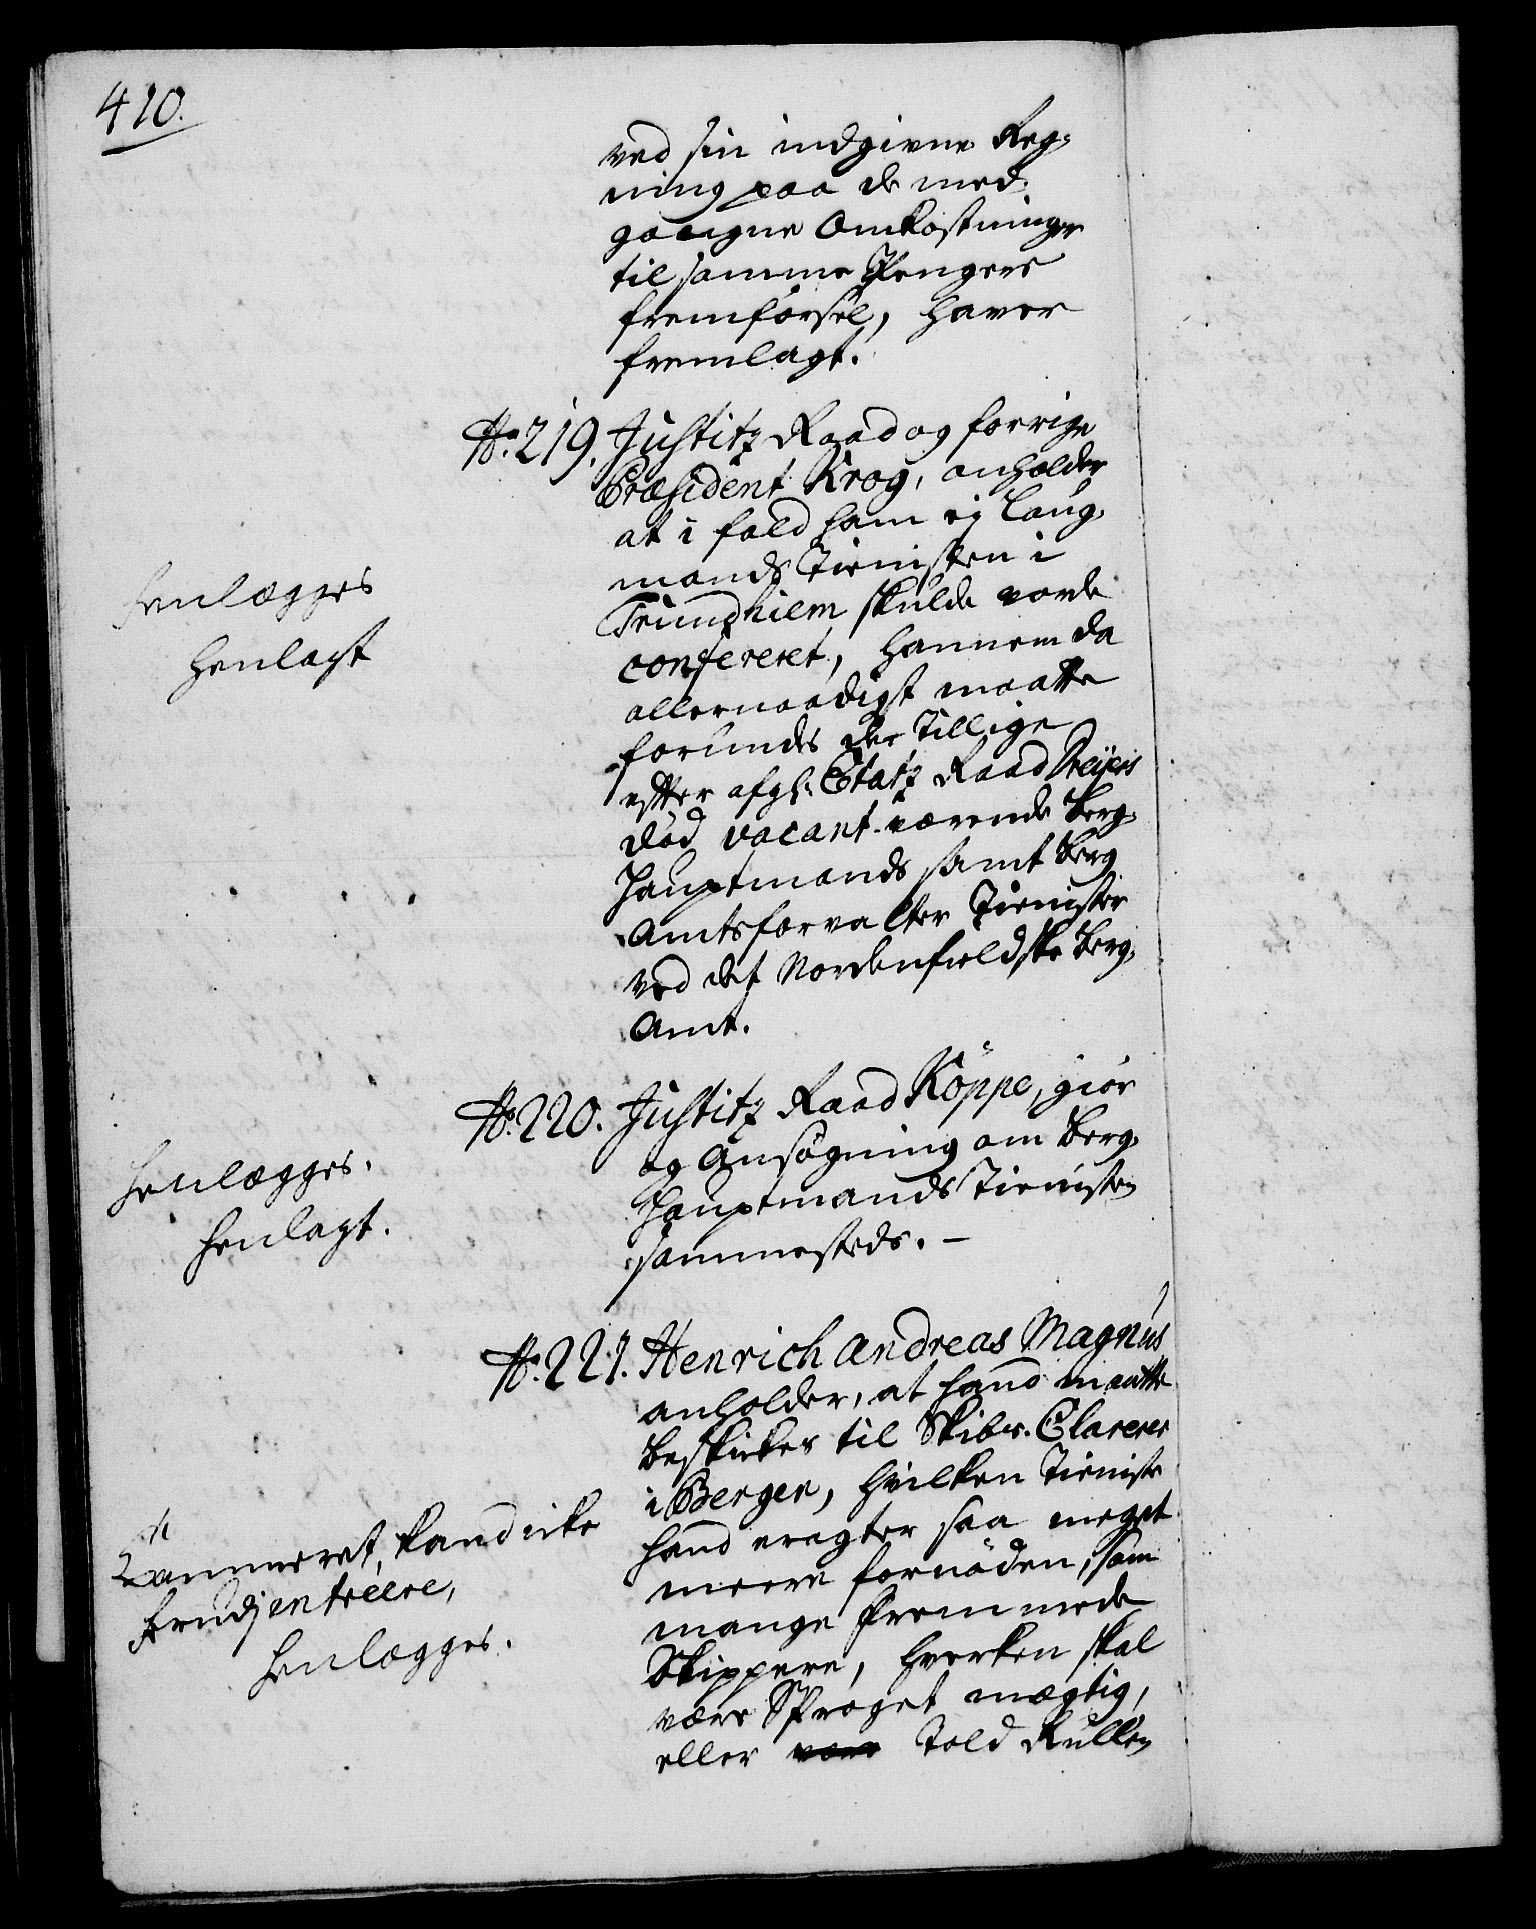 410.
ved sin indgivne Reg-
ning paa de med-
gaaigne Omkostninger
til samme Penges
fremførsel, haver
fremlagt.
No. 219. Justitz Raad og forrige
Præsident Krog, anholder
at i fald ham ej Laug-
mands Tienisten i
Trundhiem skulde vorde
confereret, hannem da
allernaadigst maatte
forundes den tillige
efter afgl. Etatz Raad
død vacant værende Berg-
Hauptmands samt Berg
Amtsforvalter Tienister
ved det Nordenfieldske Berg-
Amt.
Henlægges
henlagt
No. 220. Justitz Raad Köppe, giør
og Ansøgning om Berg-
Hauptmands Tienisten
sammesteds. –
Henlægges.
henlagt.
No. 221. Henrich Andreas Magnus
anholder, at hand maatte
beskikkes til Skibs-Clarerer
i Bergen, hvilken Tieniste
hand eragter saa meget
meere fornøden, som
mange fremmede
Skippere, hverken skal
være Sproget mægtig,
eller være Told Rullen
Cammeret, kand icke
henlægges.